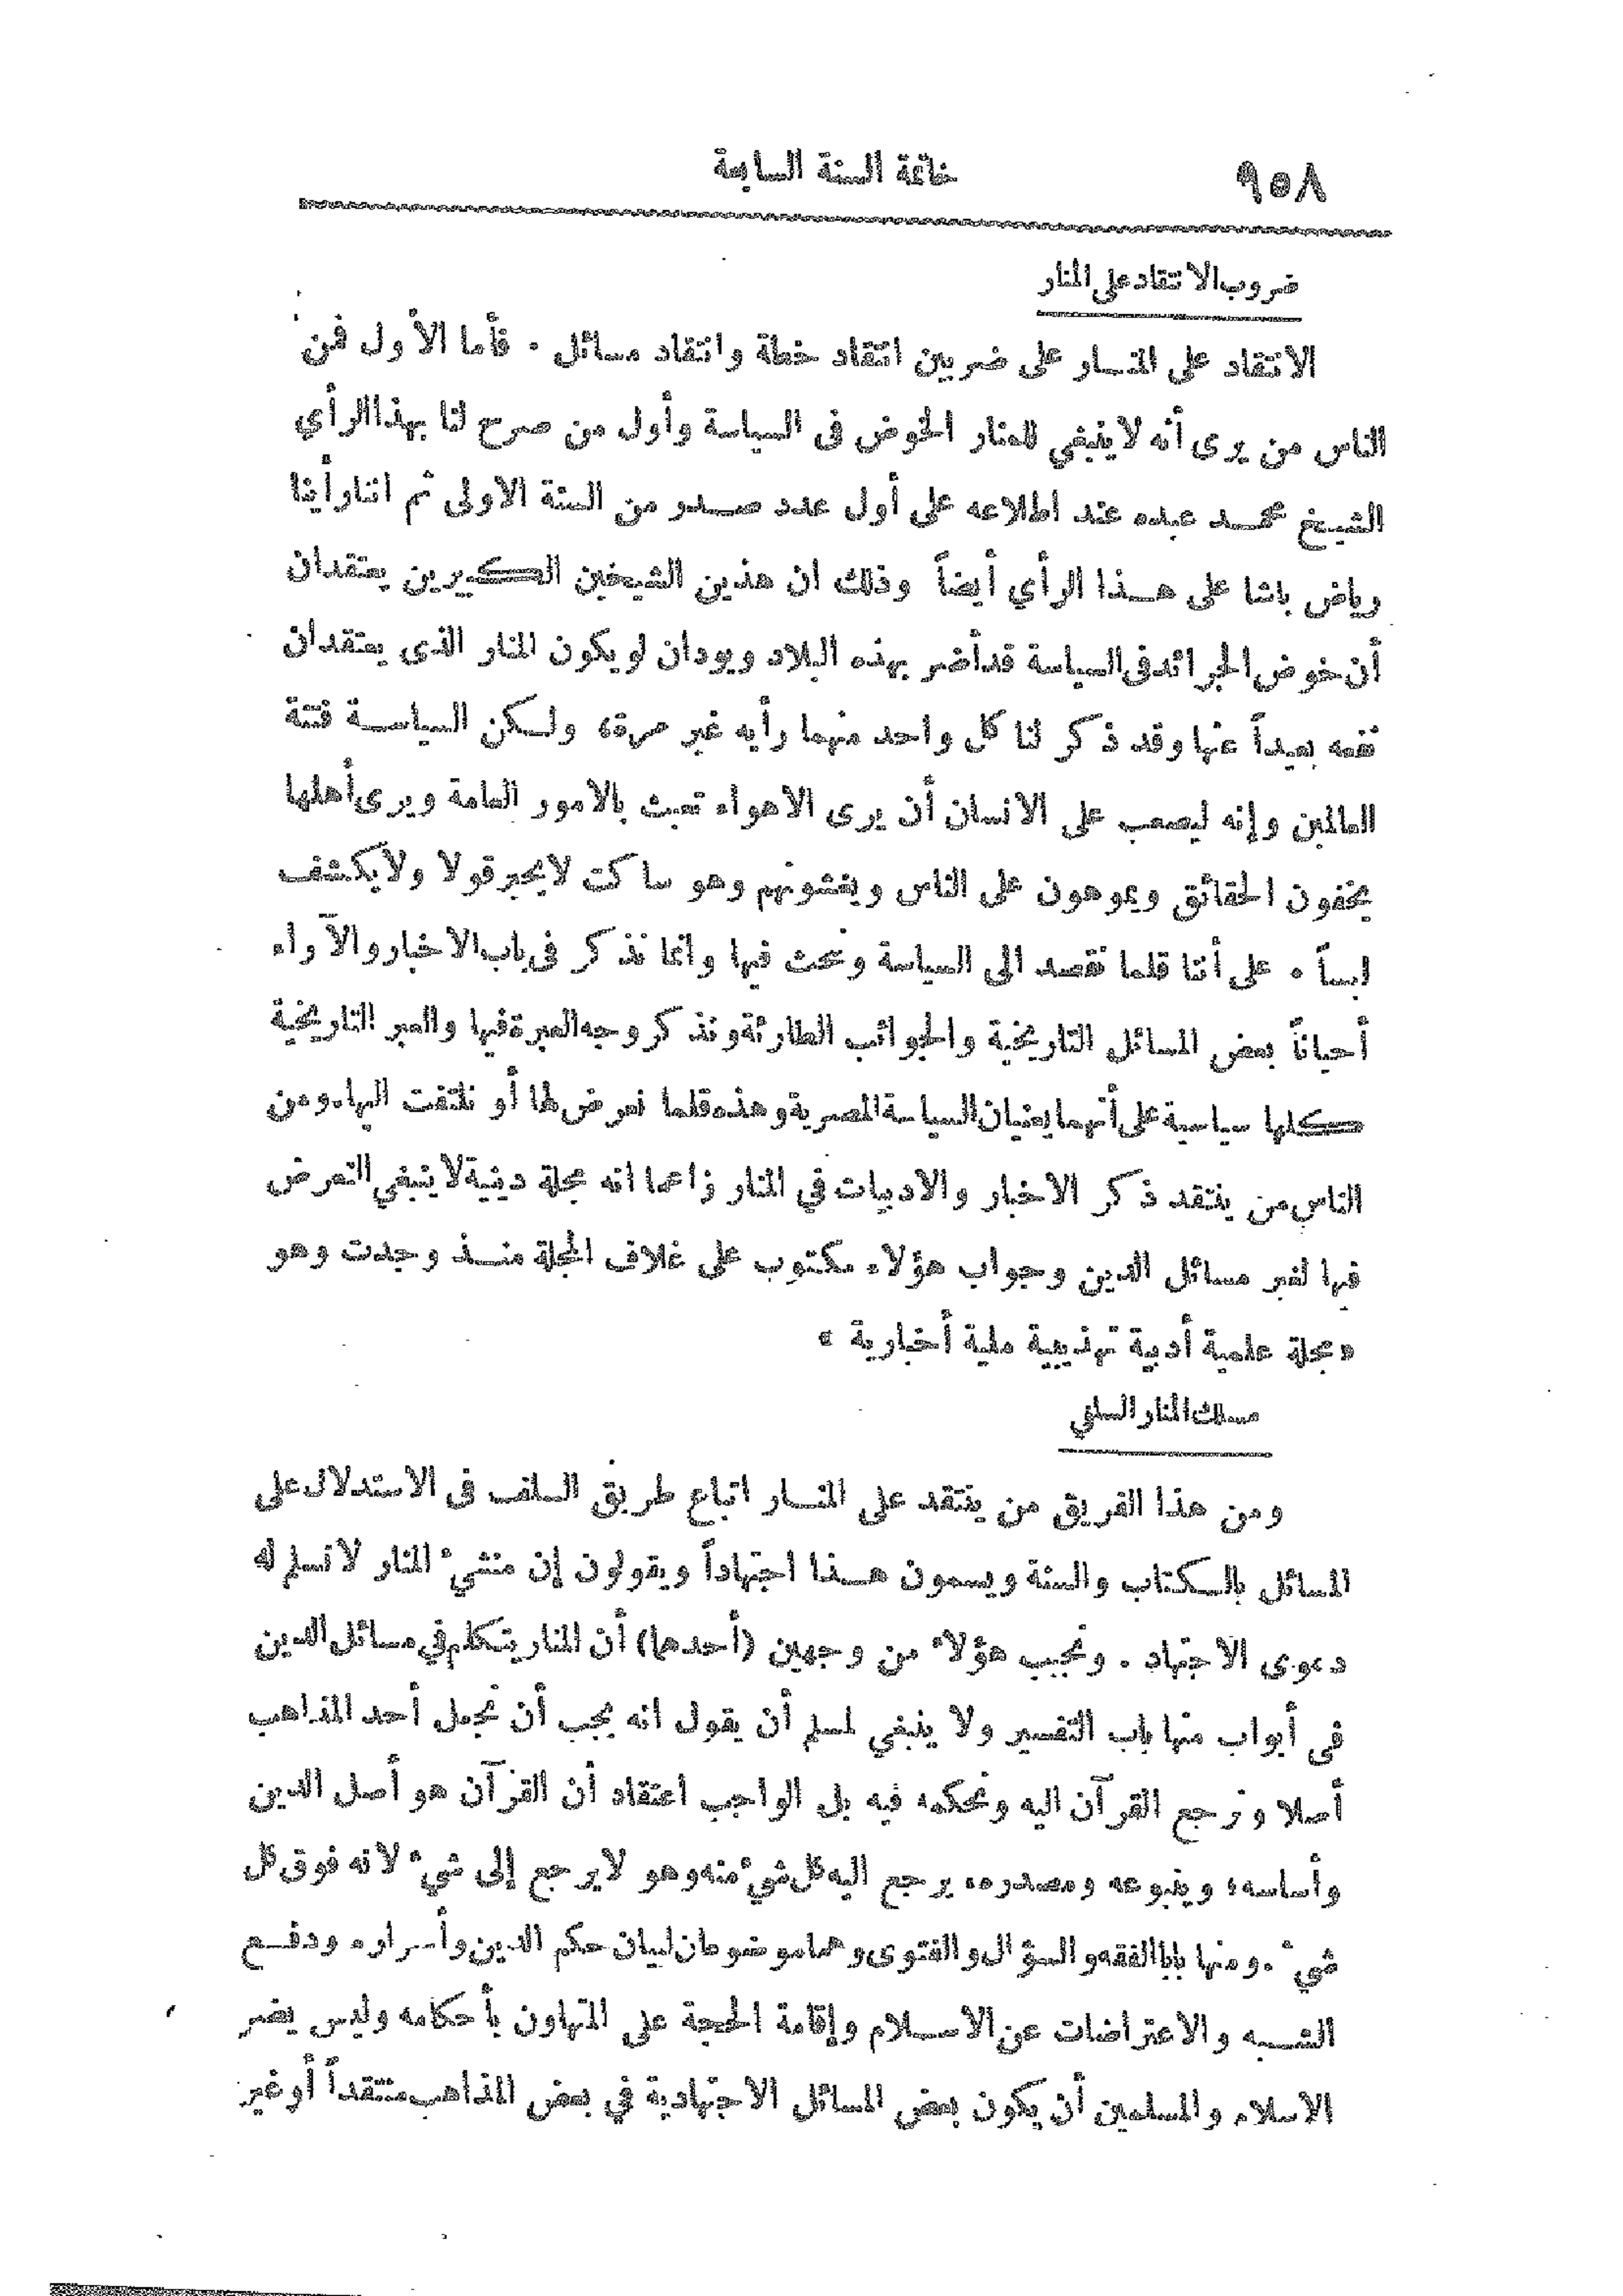 ٩٥٨
خاتمة السنة السابعة
ضروب الانتقاد على المنار
الانتقاد على المنار على ضربين انتقاد خطة وانتقاد مسائل . فأما الأول فمن
الناس من يرى أنه لا ينبغي للمنار الخوض فى السياسة وأول من صرح لنا بهذا الرأي
الشيخ محمد عبده عند اطلاعه على أول عدد صدر من السنة الاولى ثم اننا رأينا
رياض باشا على هذا الرأي أيضاً وذلك ان هذين الشيخين الكبيرين يعتقدان
أن خوض الجرائد فى السياسة قد أضر بهذه البلاد ويودان لو يكون المنار الذى يعتقدان
نفعه بعيداً عنها وقد ذكر لنا كل واحد منهما رأيه غير مرة، ولكن السياسة فتنة
العالمين وإنه ليصعب على الانسان أن يرى الاهواء تعبث بالامور العامة ويرى أهلها
يخفون الحقائق ويموهون على الناس ويغشونهم وهو ساكت لا يحير قولا ولا يكشف
لبساً . على أننا قلما نقصد الى السياسة ونبحث فيها وانما نذكر فى باب الاخبار والآراء
أحياناً بعض المسائل التاريخية والجوائب الطارئة ونذكر وجه العبرة فيها والعبر التاريخية
كلها سياسية على أنهما يعنيان السياسة المصرية وهذه قلما نعرض لها أو نلتفت اليها. ومن
الناس من ينتقد ذكر الاخبار والادبيات في المنار زاعما انه مجلة دينية لا ينبغي التعرض
فيها لغير مسائل الدين وجواب هؤلاء مكتوب على غلاف المجلة منذ وجدت وهو
«مجلة علمية أدبية تهذيبية ملية أخبارية »
مسلك المنار السلفي
ومن هذا الفريق من ينتقد على المنار اتباع طريق السلف فى الاستدلال على
المسائل بالكتاب والسنة ويسمون هذا اجتهاداً ويقولون إن منشيء المنار لا نسلم له
دعوى الاجتهاد . ونجيب هؤلاء من وجهين (أحدهما) أن المنار يتكلم في مسائل الدين
فى أبواب منها باب التفسير ولا ينبغي لمسلم أن يقول انه يجب أن نجعل أحد المذاهب
أصلا ونرجع القرآن اليه ونحكمه فيه بل الواجب اعتقاد أن القرآن هو أصل الدين
وأساسه، وينبوعه ومصدره، يرجع اليه كل شيء منه وهو لا يرجع إلى شيء لانه فوق كل
شيء . ومنها بابا الفقه والسؤال والفتوى وهما موضوعان لبيان حكم الدين وأسراره ودفع
الشبه والاعتراضات عن الاسلام وإقامة الحجة على المتهاون بأحكامه وليس يضر
الاسلام والمسلمين أن يكون بعض المسائل الاجتهادية في بعض المذاهب منتقداً أو غير